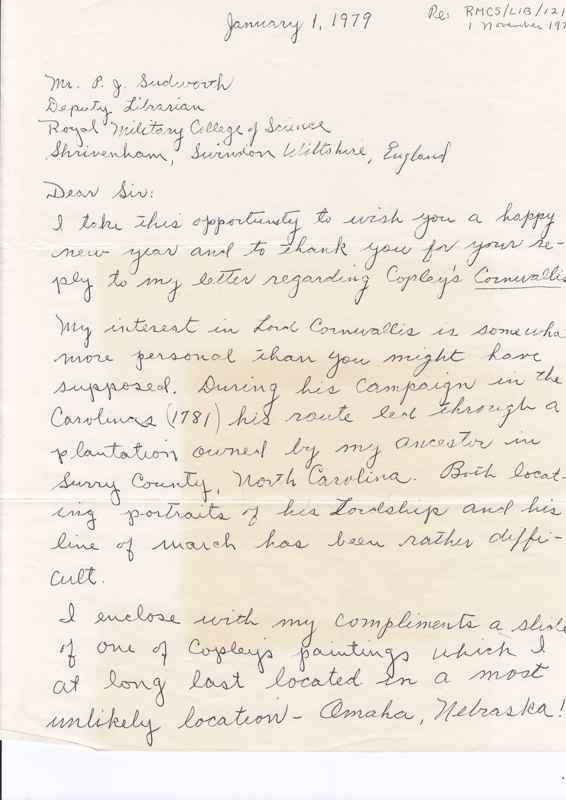 January 1, 1979
Re: RMCS/LIB/121
1 November 197
Mr. P. J. Sudworth
Deputy Librarian
Royal Military College of Science
Shrivenham, Swindon Wiltshire, England
Dear Sir:
I take this opportunity to wish you a happy
new year and to thank you for your re-
ply to my letter regarding Copley's Cornwallis
My interest in Lord Cornwallis is somewha
more personal than you might have
supposed. During his campaign in the
Carolinas (1781) his route led through a
plantation owned by my ancestor in
Surry County, North Carolina. Both locat-
ing portraits of his Lordship and his
line of march has been rather diffi-
cult.
I enclose with my compliments a slide
of one of Copley's paintings which I
at long last located in a most
unlikely location - Omaha, Nebraska!